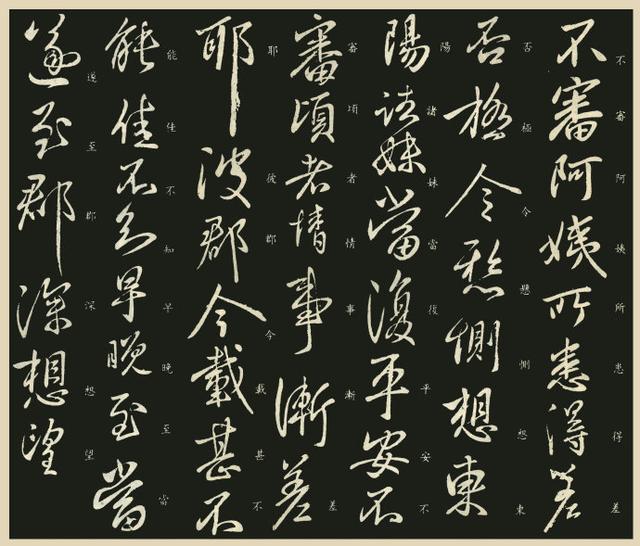 不審阿姨所患得差
不審阿姨所患得差
否極令懸惻想東
否極令懸惻想東
陽諸妹當復平安不
陽諸妹當復平安不
審頃者情事漸差
審頃者情事漸差
耶彼郡今載甚不
耶彼郡今載甚不
能佳不知早晚至當
能佳不知早晚至當
遂至郡深想望
遂至郡深想望